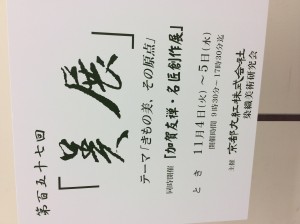 第百五十七回
「美展」
テーマ「きもの美、その原点」
同時開催「加賀友禅・名匠創作展」
とき 11月4日(火)～5日(水)
開催時間 9時30分～17時30分迄
主催 京都丸紅株式会社
染織美術研究会